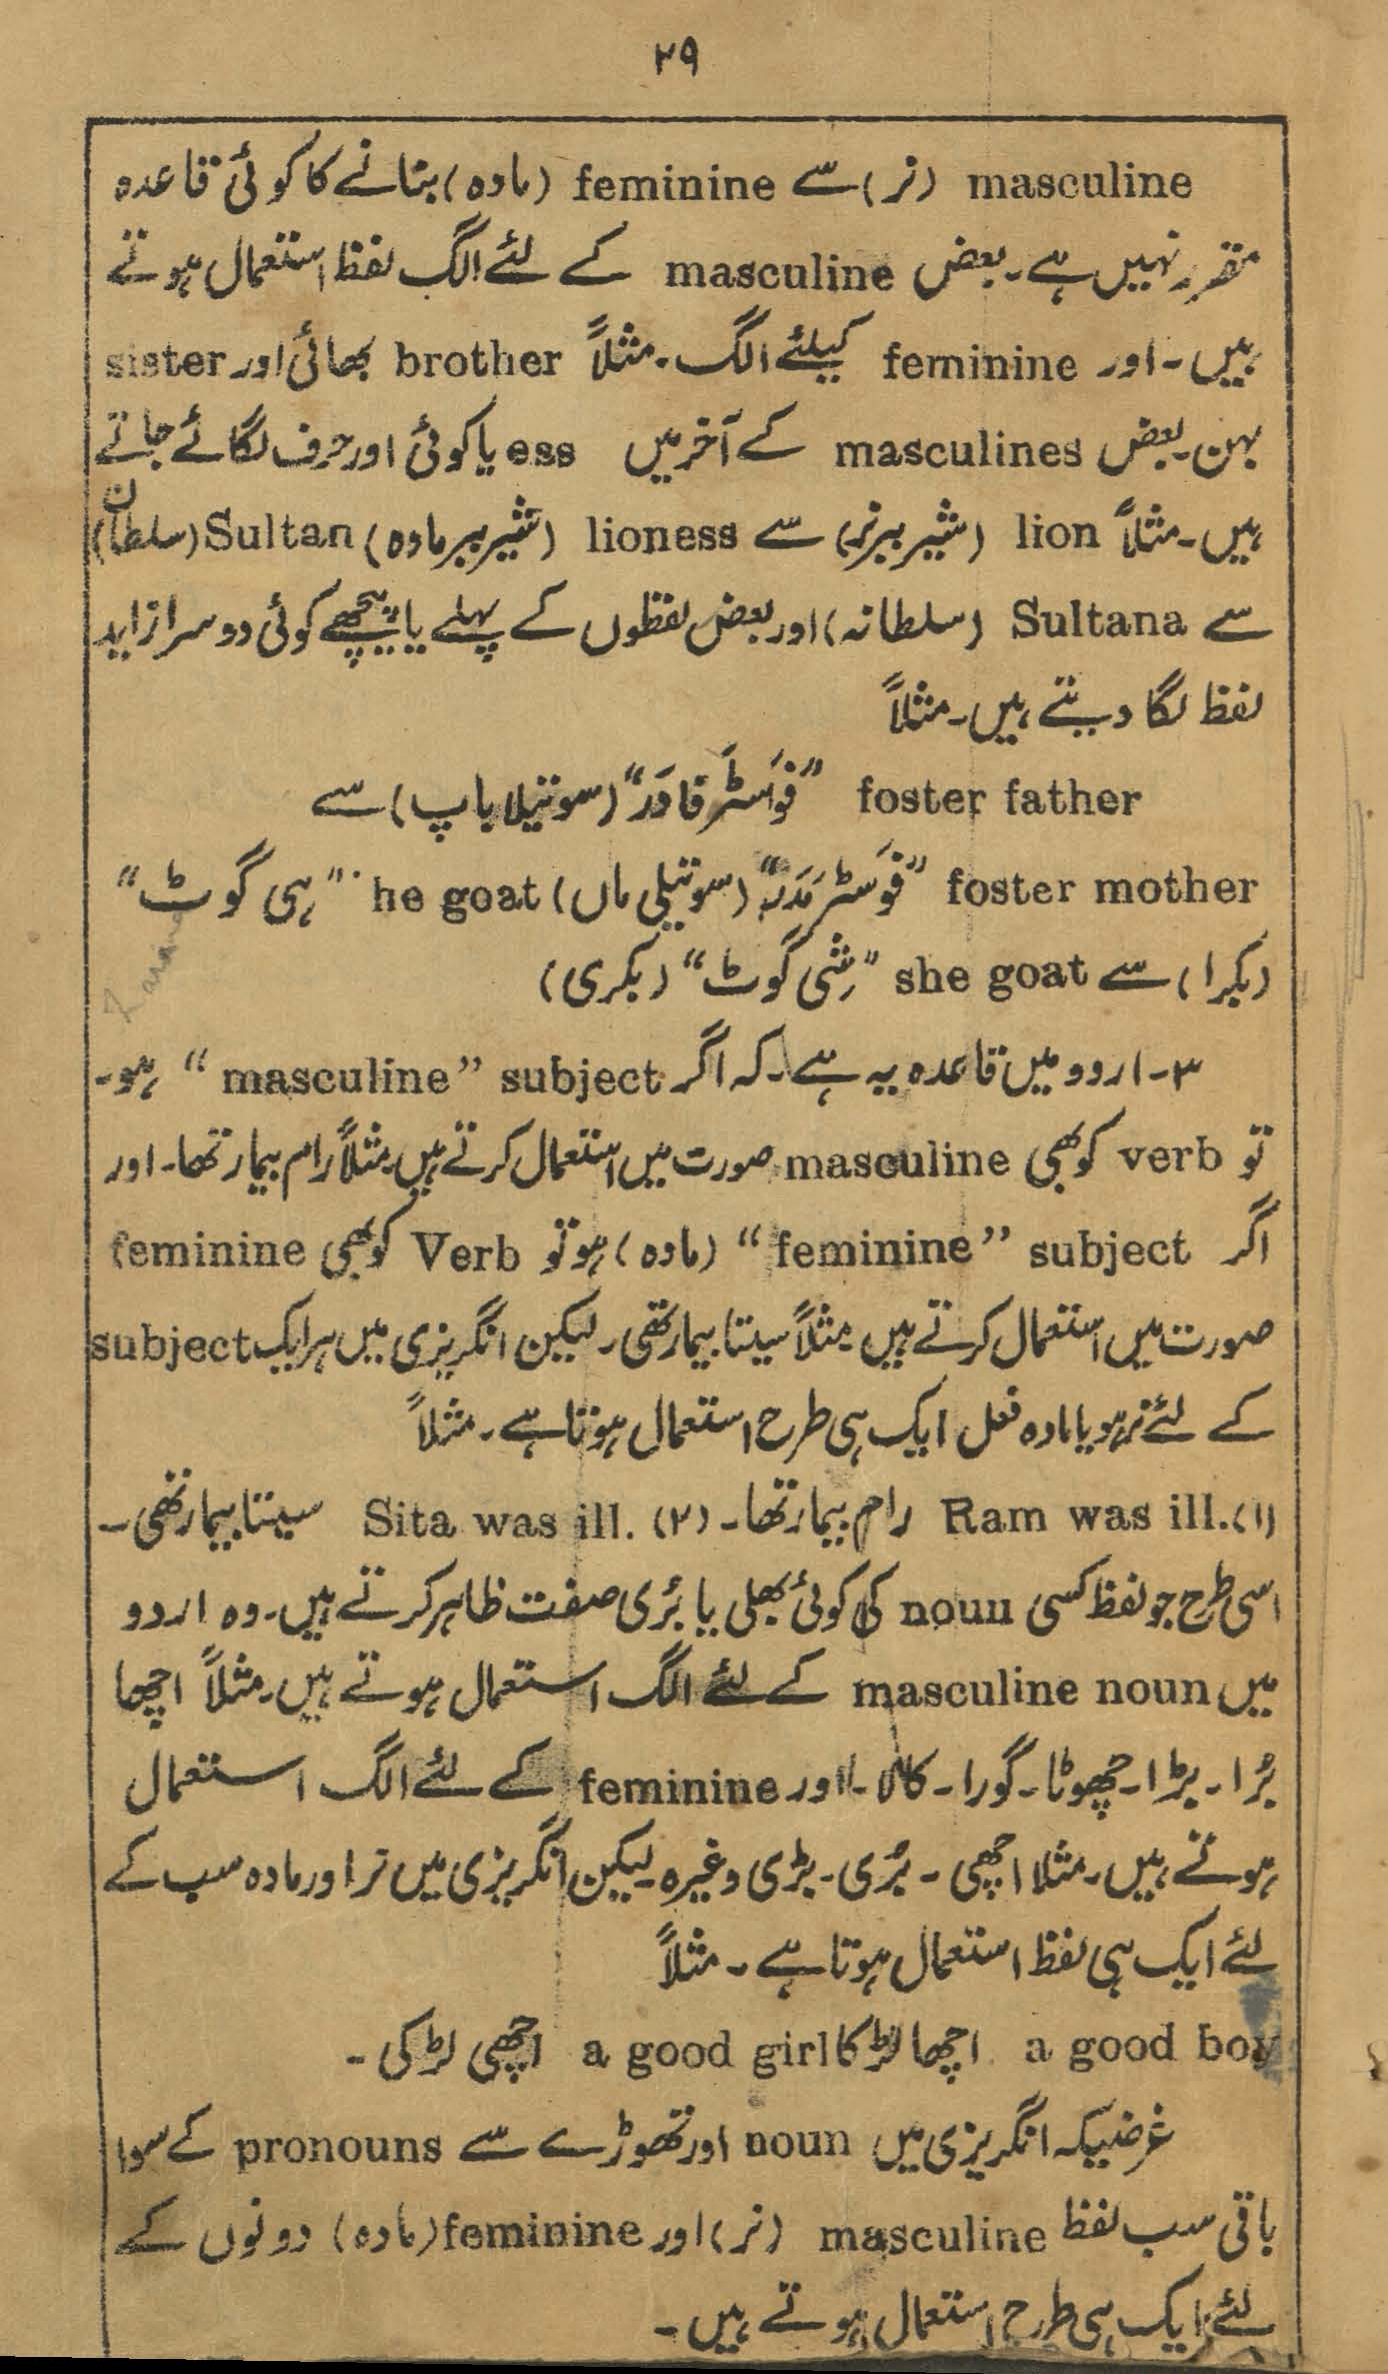 ۲۹
masculine (نر) سے feminine (مادہ) بنانے کا کوئی قاعدہ
مقرر نہیں ہے۔ بعض masculine کے لئے الگ لفظ استعمال ہوتے
ہیں۔ اور feminine کیلئے الگ۔ مثلاً brother بھائی اور sister
بہن۔ بعض masculines کے آخر میں ess یا کوئی اور حرف لگائے جاتے
ہیں۔ مثلاً lion (شیر ببر نر) سے lioness (شیر ببر مادہ) Sultan (سلطان)
سے Sultana (سلطانہ) اور بعض لفظوں کے پہلے یا پیچھے کوئی دوسرا زاید
لفظ لگا دیتے ہیں۔ مثلاً
foster father "فوَسٹَر فادَر" (سوتیلا باپ) سے
foster mother "فوَسٹر مَدَر" (سوتیلی ماں) he goat "ہی گوٹ"
(بکرا) سے she goat "شی گوٹ" (بکری)
۳۔ اردو میں قاعدہ یہ ہے۔ کہ اگر subject "masculine" ہو۔
تو verb کو بھی masculine صورت میں استعمال کرتے ہیں مثلاً رام بیمار تھا۔ اور
اگر subject "feminine" (مادہ) ہو تو Verb کو بھی feminine
صورت میں استعمال کرتے ہیں مثلاً سیتا بیمار تھی۔ لیکن انگریزی میں ہر ایک subject
کے لئے نر ہو یا مادہ فعل ایک ہی طرح استعمال ہوتا ہے۔ مثلاً
(۱) Ram was ill. رام بیمار تھا۔ (۲) Sita was ill. سیتا بیمار تھی۔
اسی طرح جو لفظ کسی noun کی کوئی بھلی یا بُری صفت ظاہر کرتے ہیں۔ وہ اردو
میں masculine noun کے لئے الگ استعمال ہوتے ہیں۔ مثلاً اچھا
بُرا۔ بڑا۔ چھوٹا۔ گورا۔ کالا۔ اور feminine کے لئے الگ استعمال
ہوتے ہیں۔ مثلا اچھی۔ بُری۔ بڑی وغیرہ۔ لیکن انگریزی میں نر اور مادہ سب کے
لئے ایک ہی لفظ استعمال ہوتا ہے۔ مثلاً
a good boy اچھا لڑکا a good girl اچھی لڑکی۔
غرضیکہ انگریزی میں noun اور تھوڑے سے pronouns کے سوا
باقی سب لفظ masculine (نر) اور feminine (مادہ) دونوں کے
لئے ایک ہی طرح استعمال ہوتے ہیں۔